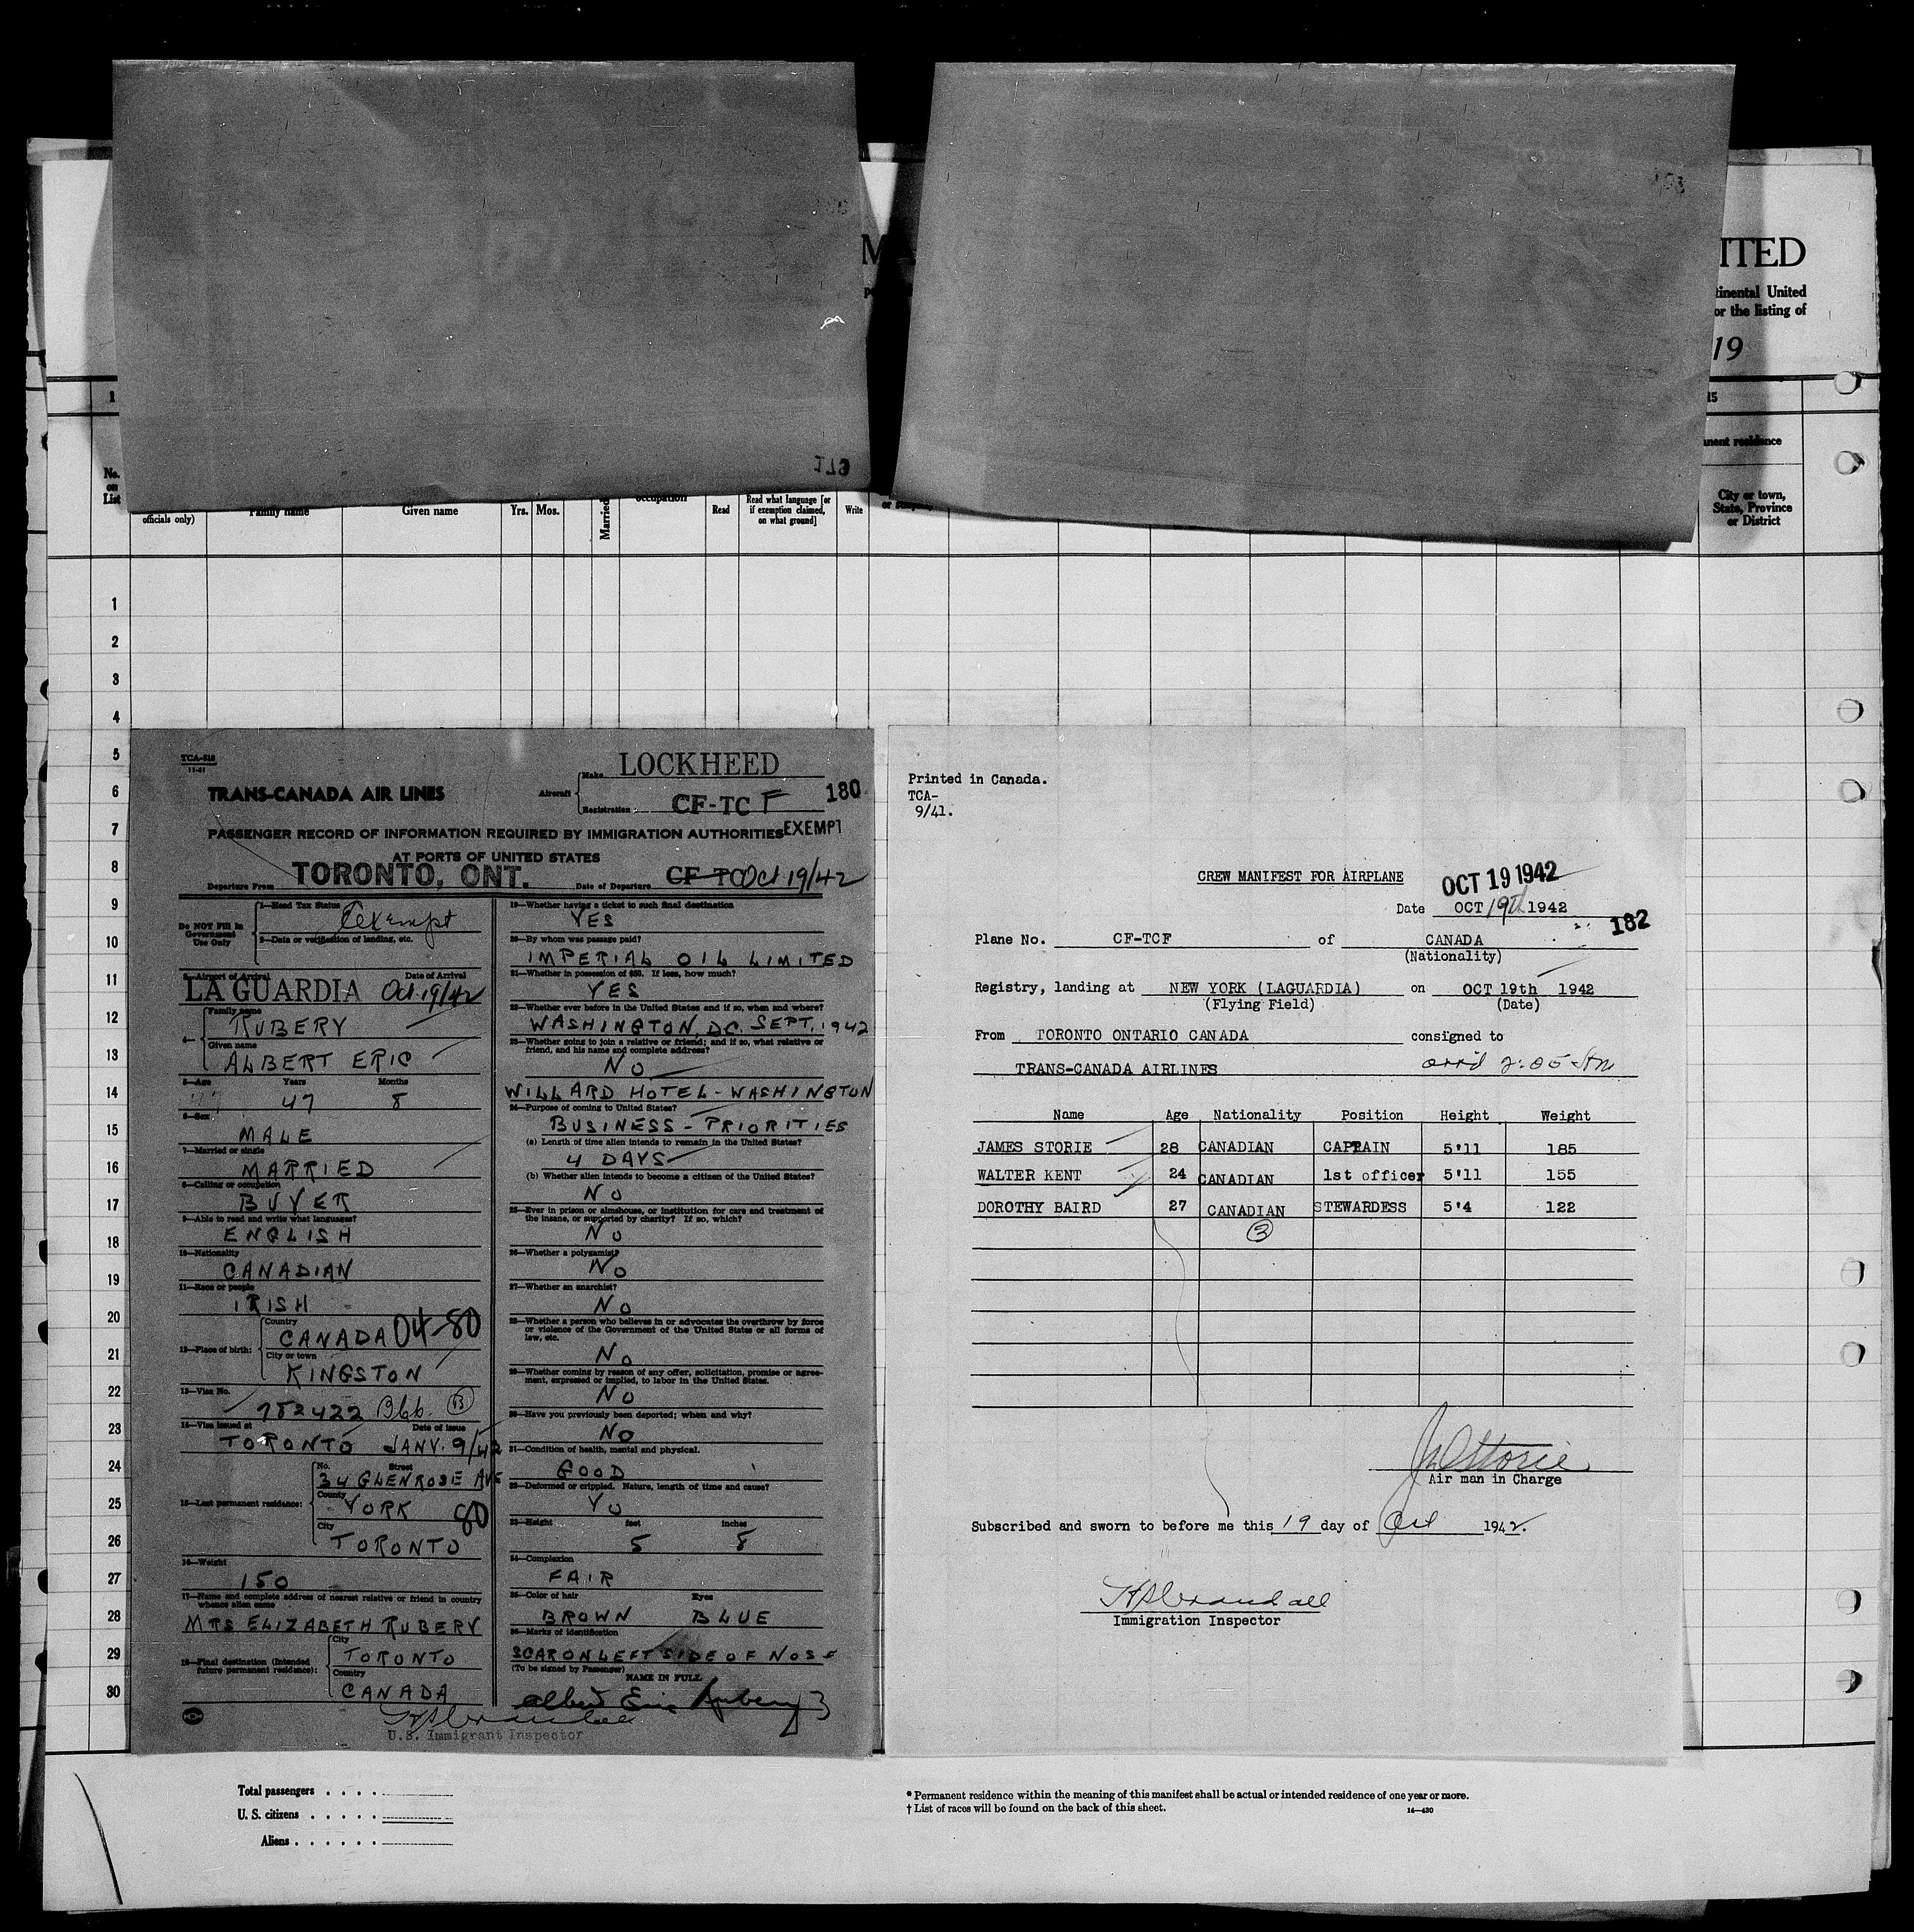 MA
ITED
tinental United
or the listing of
19
1
15
nent residence
No.
on
List
officials only)
Family name
Given name
Yrs.
Mos.
Married
occupation
Read
Read what language [or
if exemption claimed,
on what ground]
Write
City or town,
State, Province
or District
1
2
3
4
5
6
7
8
9
10
11
12
13
14
15
16
17
18
19
20
21
22
23
24
25
26
27
28
29
30
TCA-518
11-41
TRANS-CANADA AIR LINES
Aircraft
Make LOCKHEED
Registration CF-TC F
180
PASSENGER RECORD OF INFORMATION REQUIRED BY IMMIGRATION AUTHORITIES EXEMPT
AT PORTS OF UNITED STATES
Departure From TORONTO, ONT. Date of Departure CF-TC Oct 19/42
Do NOT Fill In
Government
Use Only
1—Head Tax Status Exempt
2—Data or verification of landing, etc.
3—Airport of Arrival Date of Arrival
LA GUARDIA Oct. 19/42
4—
Family name
RUBERY
Given name
ALBERT ERIC
5—Age Years Months
47 8
6—Sex
MALE
7—Married or single
MARRIED
8—Calling or occupation
BUYER
9—Able to read and write what languages?
ENGLISH
10—Nationality
CANADIAN
11—Race or people
IRISH
12—Place of birth:
Country
CANADA 04-80
City or town
KINGSTON
13—Visa No.
782422 B66. B
14—Visa issued at Date of issue
TORONTO JANV. 9/42
15—Last permanent residence:
No. Street
34 GLENROSE AVE
County
YORK 80
City
TORONTO
16—Weight
150
17—Name and complete address of nearest relative or friend in country
whence alien came
MRS ELIZABETH RUBERY
18—Final destination (Intended
future permanent residence):
City
TORONTO
Country
CANADA
19—Whether having a ticket to such final destination
YES
20—By whom was passage paid?
IMPERIAL OIL LIMITED
21—Whether in possession of $50. If less, how much?
YES
22—Whether ever before in the United States and if so, when and where?
WASHINGTON, D.C. SEPT, 1942
23—Whether going to join a relative or friend; and if so, what relative or
friend, and his name and complete address?
NO
WILLARD HOTEL - WASHINGTON
24—Purpose of coming to United States?
BUSINESS - PRIORITIES
(a) Length of time alien intends to remain in the United States?
4 DAYS
(b) Whether alien intends to become a citizen of the United States?
NO
25—Ever in prison or almshouse, or institution for care and treatment of
the insane, or supported by charity? If so, which?
NO
26—Whether a polygamist?
NO
27—Whether an anarchist?
NO
28—Whether a person who believes in or advocates the overthrow by force
or violence of the Government of the United States or all forms of
law, etc.
NO
29—Whether coming by reason of any offer, solicitation, promise or agree-
ment, expressed or implied, to labor in the United States.
NO
30—Have you previously been deported; when and why?
NO
31—Condition of health, mental and physical.
GOOD
32—Deformed or crippled. Nature, length of time and cause?
NO
33—Height feet inches
5 8
34—Complexion
FAIR
35—Color of hair Eyes
BROWN BLUE
36—Marks of identification
SCAR ON LEFT SIDE OF NOSE
(To be signed by Passenger)
NAME IN FULL
Albert Eric Rubery
U.S. Immigrant Inspector
Printed in Canada.
TCA-
9/41.
CREW MANIFEST FOR AIRPLANE
OCT 19 1942
Date OCT 19th 1942
182
Plane No. CF-TCF of CANADA
(Nationality)
Registry, landing at NEW YORK (LAGUARDIA) on OCT 19th 1942
(Flying Field) (Date)
From TORONTO ONTARIO CANADA consigned to
TRANS-CANADA AIRLINES arr'd 2:05
Name Age Nationality Position Height Weight
JAMES STORIE 28 CANADIAN CAPTAIN 5'11 185
WALTER KENT 24 CANADIAN 1st officer 5'11 155
DOROTHY BAIRD 27 CANADIAN STEWARDESS 5'4 122
3
Storie
Air man in Charge
Subscribed and sworn to before me this 19 day of Oct 1942.
Immigration Inspector
Total passengers . . . .
U. S. citizens . . . . .
Aliens . . . . . .
* Permanent residence within the meaning of this manifest shall be actual or intended residence of one year or more.
† List of races will be found on the back of this sheet.
14—430